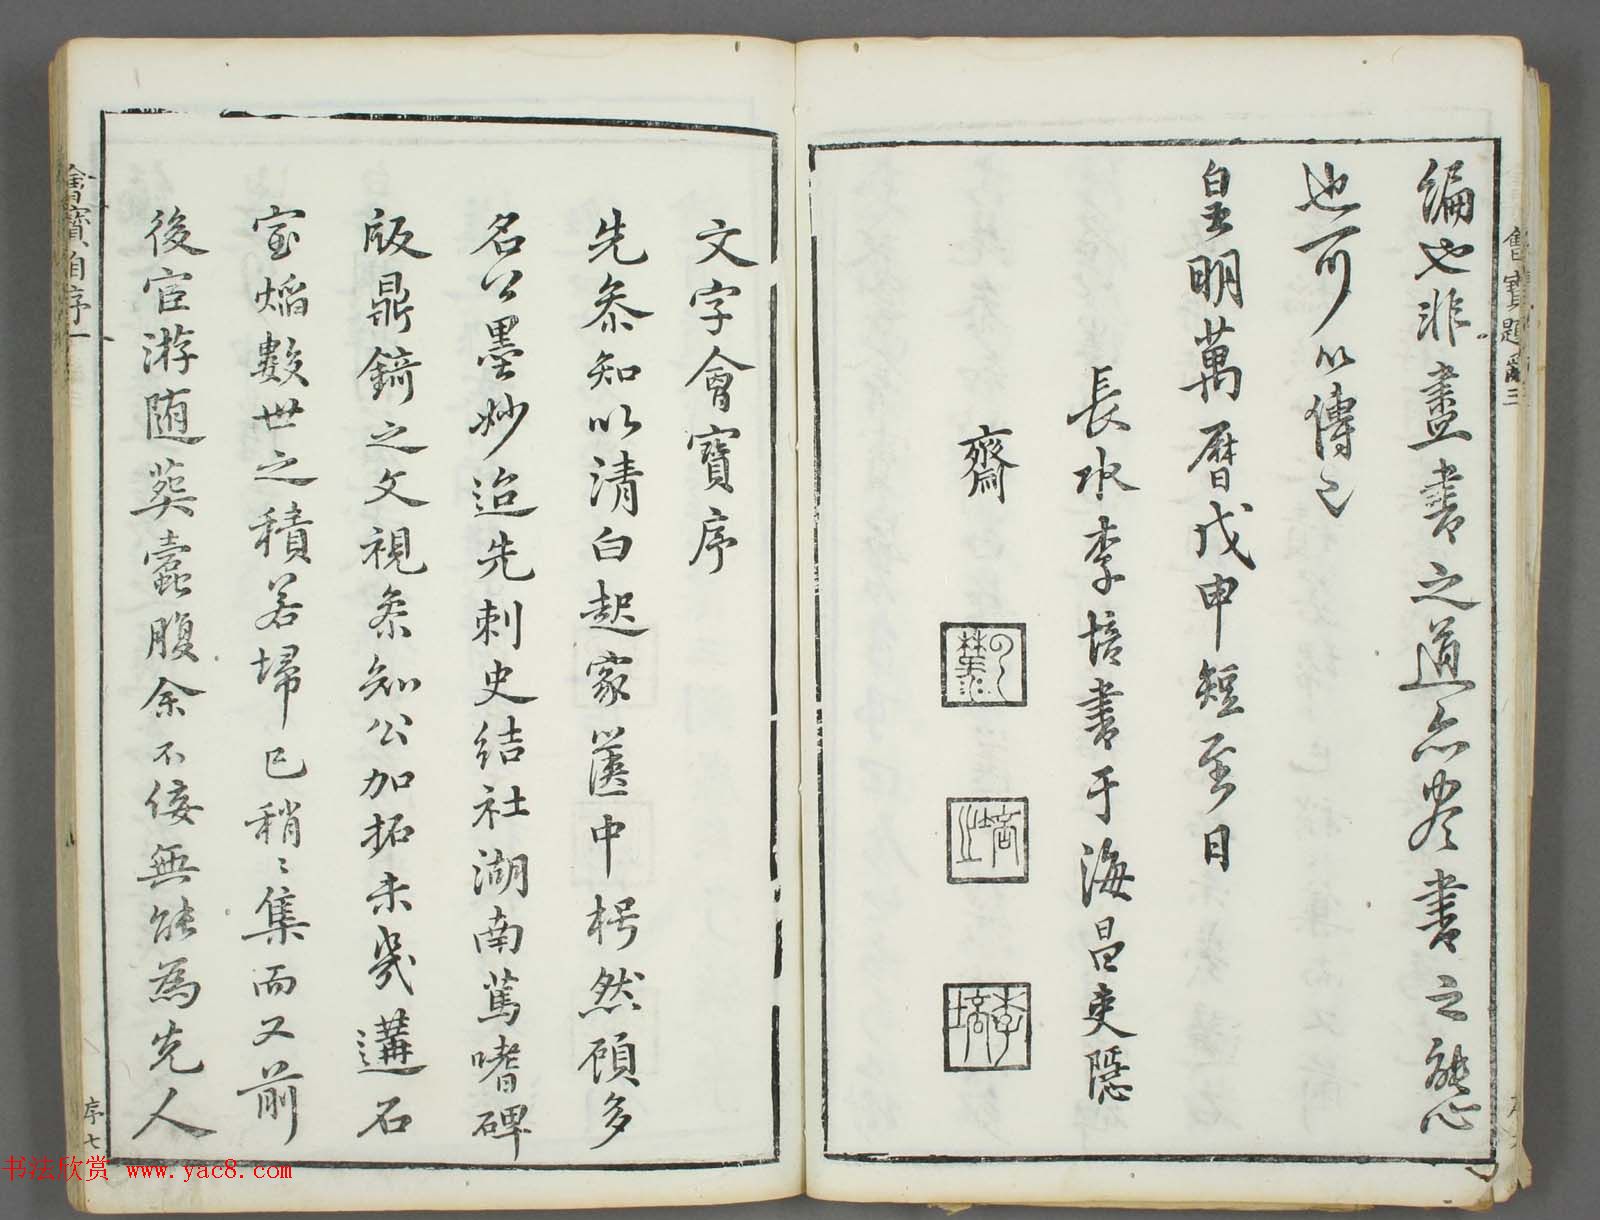 編也非盡書之道亦尽書之態
也可以傳已
皇明萬曆戊申短至日
長水李培書于海昌吏隱
齋
李培
文字會寶序
先叅知以清白起家篋中枵然頋多
名公墨妙迨先刺史結社湖南篤嗜碑
版鼎錡之文視叅知公加拓未幾遘石
室熖數世之積若埽已稍〻集而又前
後宦游随葬蠹腹余不佞無能為先人
會寶自序一
序七
會寶題辭三
书法欣赏 www.yac8.com